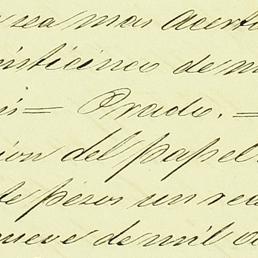 sea mas acert
nticinco de m
= Prado. =
ion del papel
de pesos un rec
nueve de mil oc